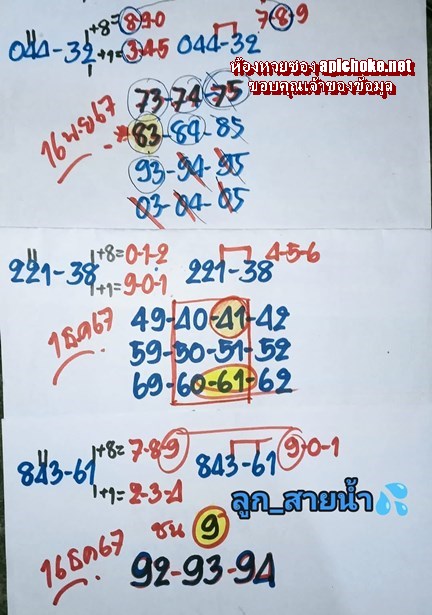 +8=8-9-0
7-8-9
044-32
+1=3-4-5
044-32
ห้องหวยซอง apichoke.net
ขอบคุณเจ้าของข้อมูล
16 พ.ย 67
73-74-75
*83-84-85
93-94-95
03-04-05
+8=0-1-2
4-5-6
221-38
+1=9-0-1
221-38
1 ธค 67
49-40-41-42
59-50-51-52
69-60-61-62
+8=7-8-9
9-0-1
843-61
+1=2-3-4
843-61
ลูก_สายน้ำ
ชน 9
16 ธค 67
92-93-94